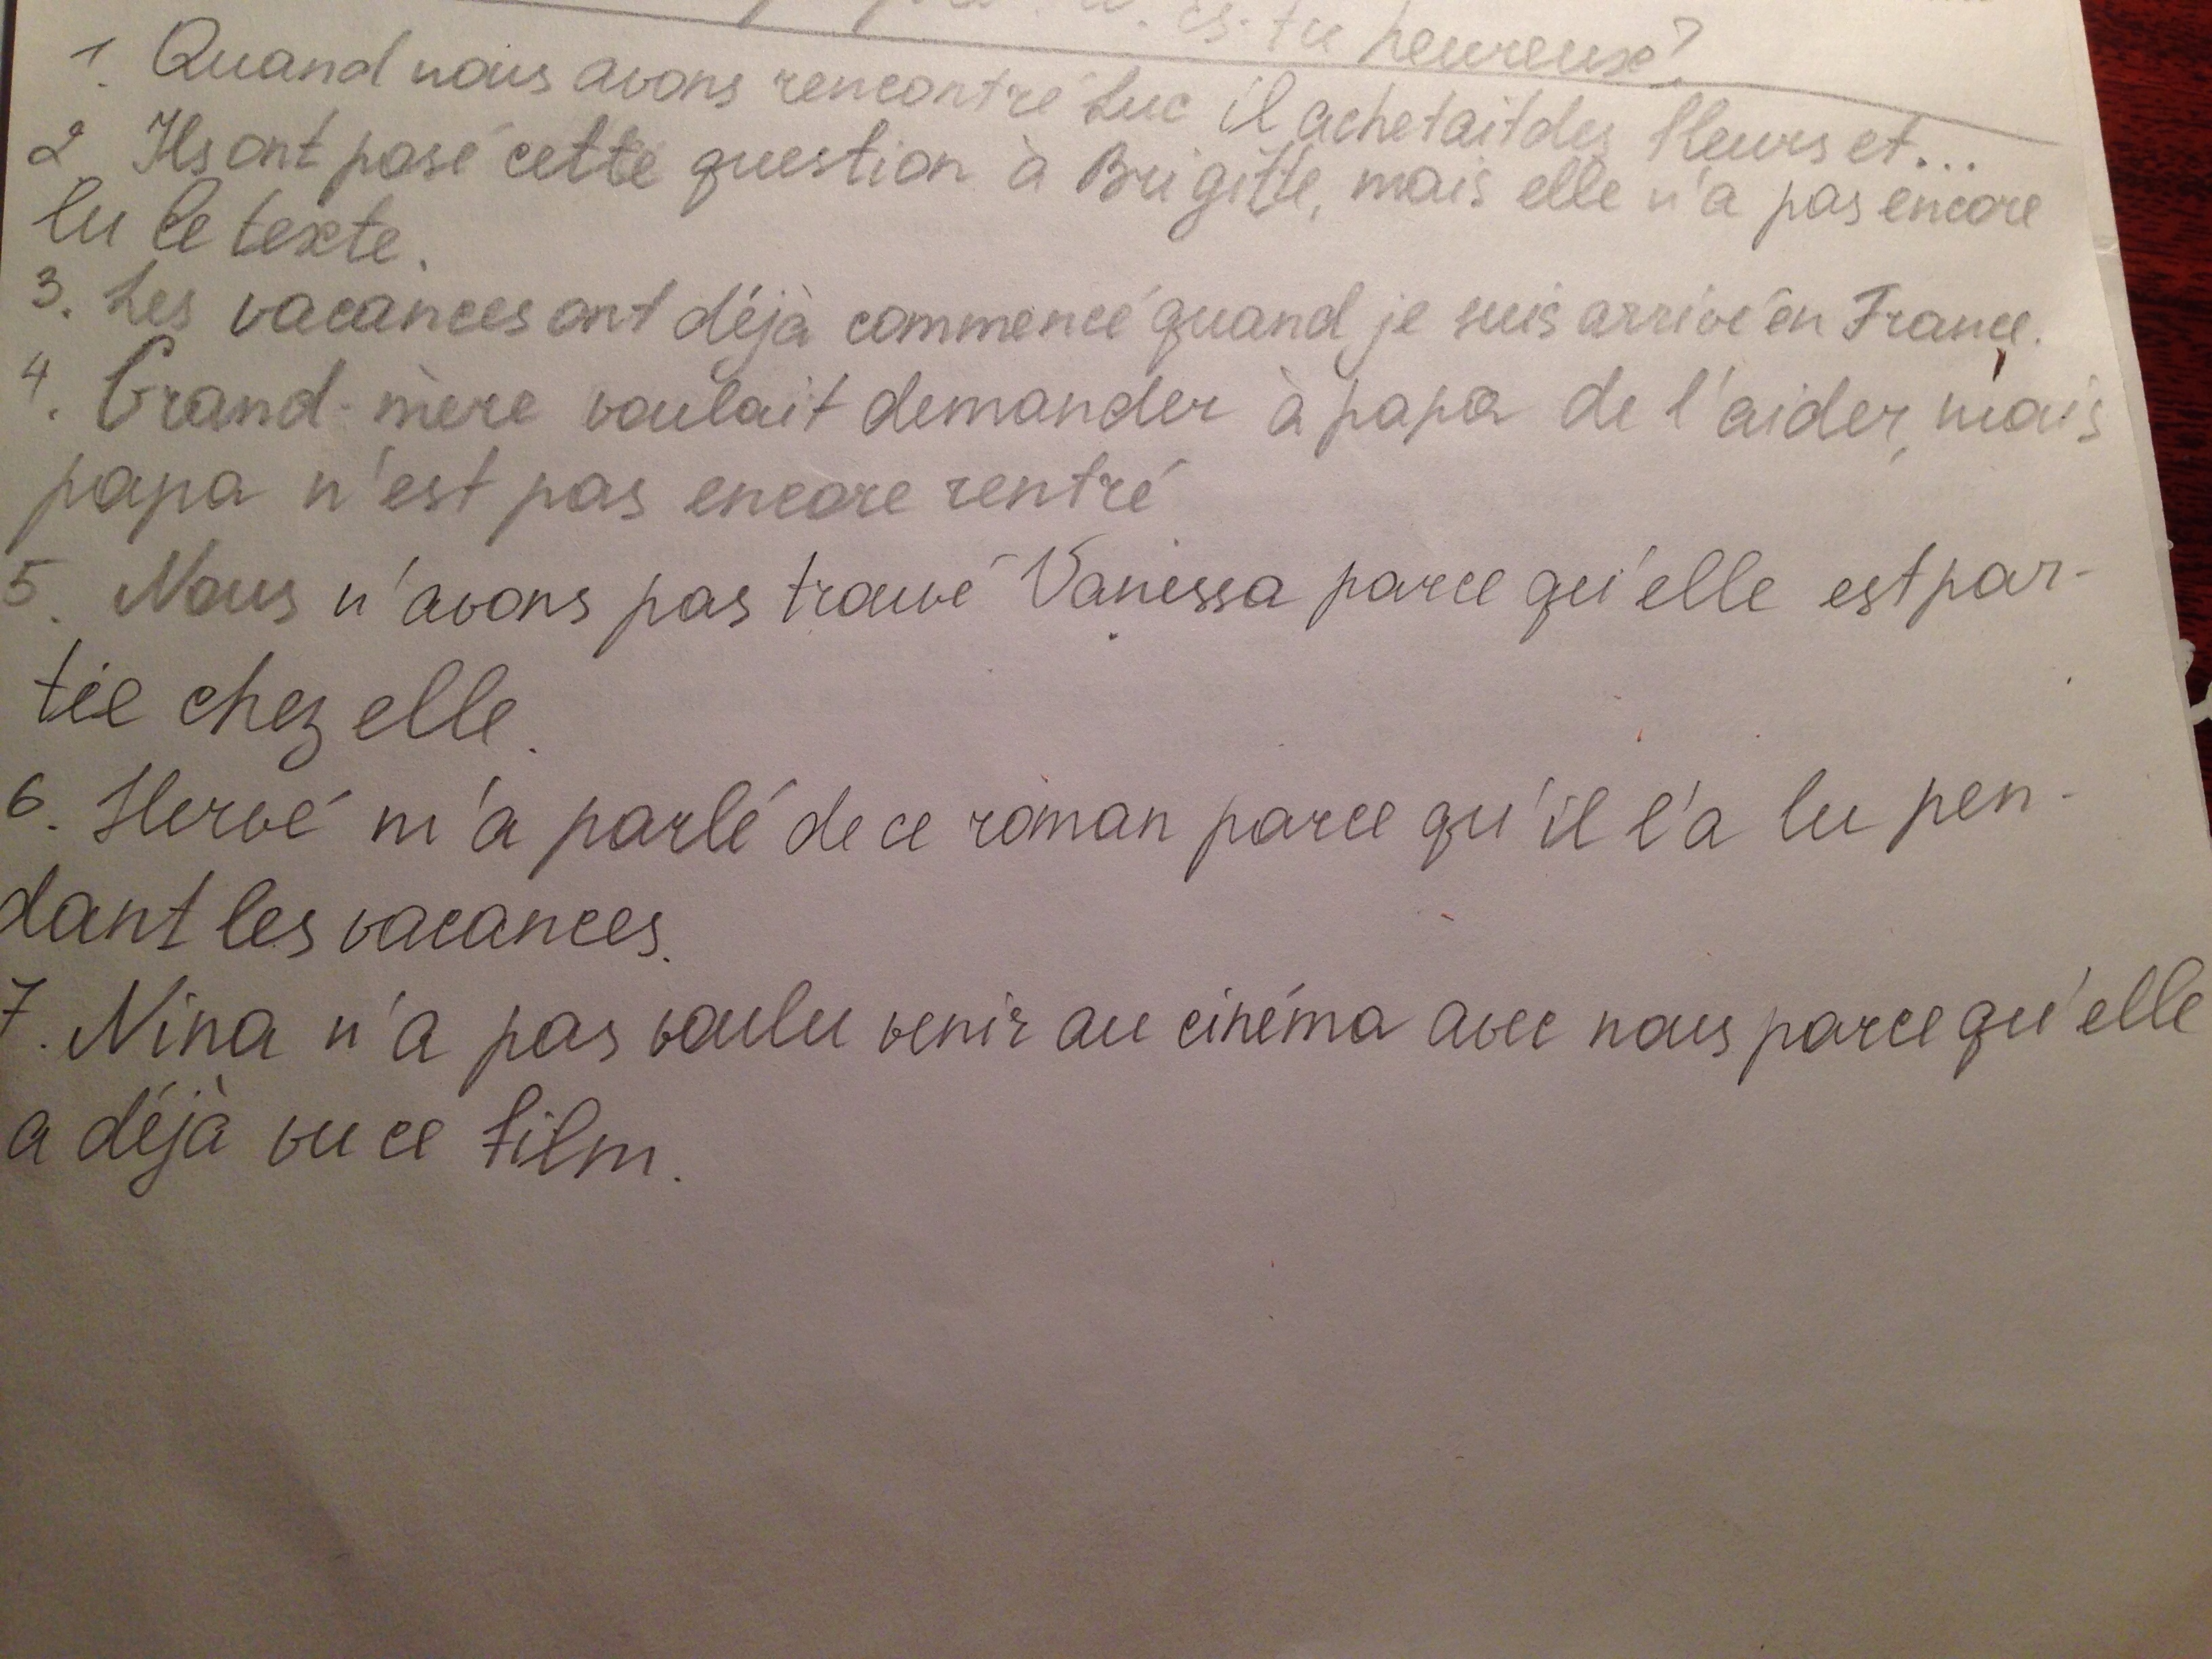 es-tu heureux?
1. Quand nous avons rencontré Luc il achetait des fleurs et...
2. Ils ont posé cette question à Brigitte, mais elle n'a pas encore
lu le texte.
3. Les vacances ont déjà commencé quand je suis arrivé en France.
4. Grand-mère voulait demander à papa de l'aider, mais
papa n'est pas encore rentré
5. Nous n'avons pas trouvé Vanessa parce qu'elle est par-
tie chez elle.
6. Hervé m'a parlé de ce roman parce qu'il l'a lu pen-
dant les vacances.
7. Nina n'a pas voulu venir au cinéma avec nous parce qu'elle
a déjà vu ce film.